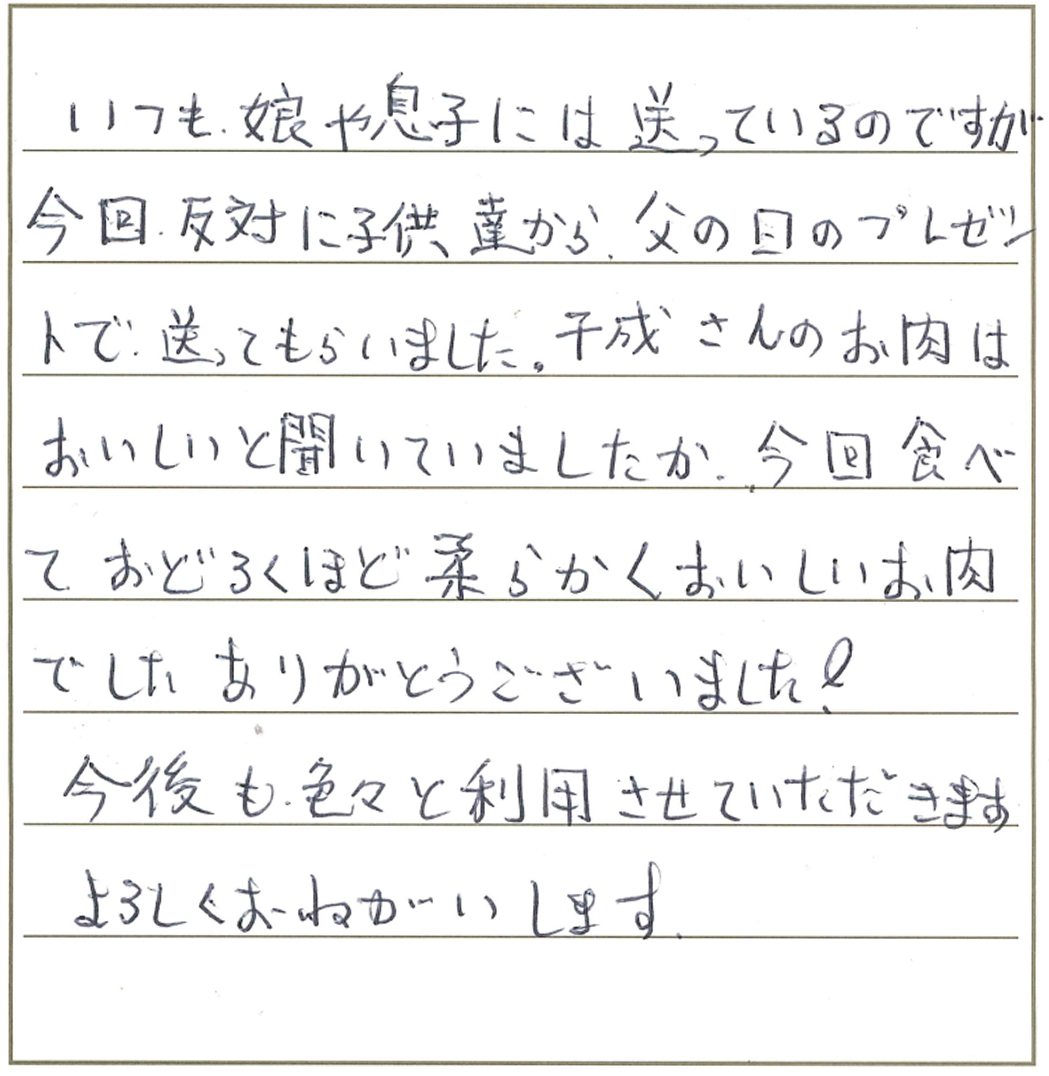 いつも.娘や息子には送っているのですが
今回.反対に子供達から.父の日のプレゼン
トで.送ってもらいました。干成さんのお肉は
おいしいと聞いていましたが.今回食べ
ておどろくほど柔らかくおいしいお肉
でしたありがとうございました!
今後も.色々と利用させていただきます
よろしくおねがいします.